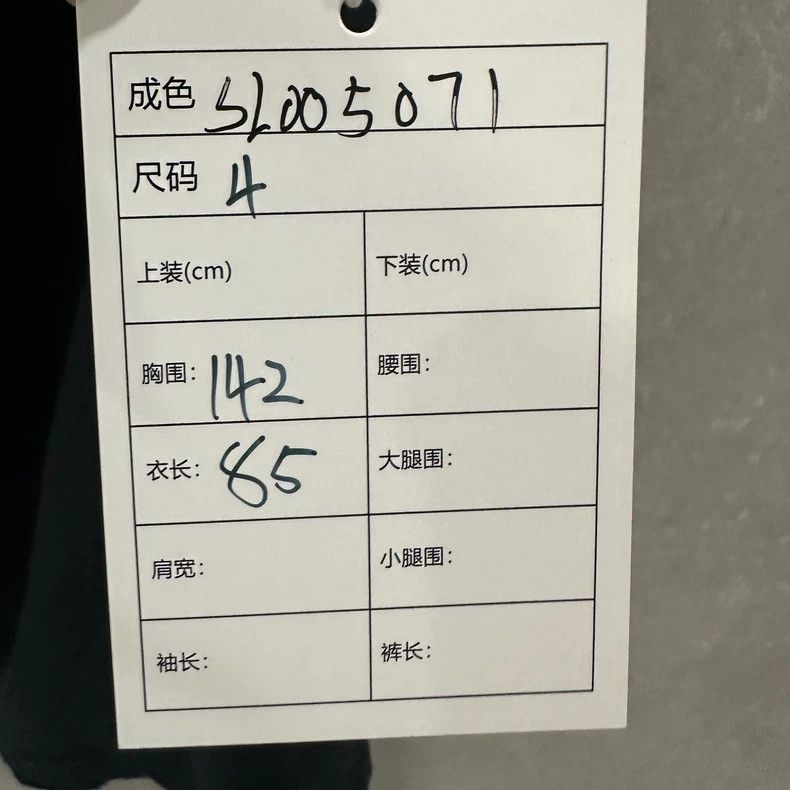 成色 SL005071
尺码 4
上装(cm) 下装(cm)
胸围: 142 腰围:
衣长: 85 大腿围:
肩宽: 小腿围:
袖长: 裤长: